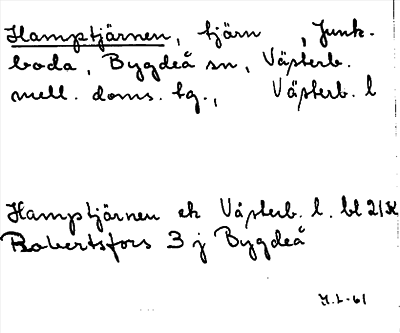 Hamptjärnen, tjärn , Junk-
boda, Bygdeå sn, Västerb.
mell. doms. tg., Västerb. l
Hamptjärnen ek Västerb. l. bl 21 SK
Robertsfors 3 j Bygdeå
H.L-61